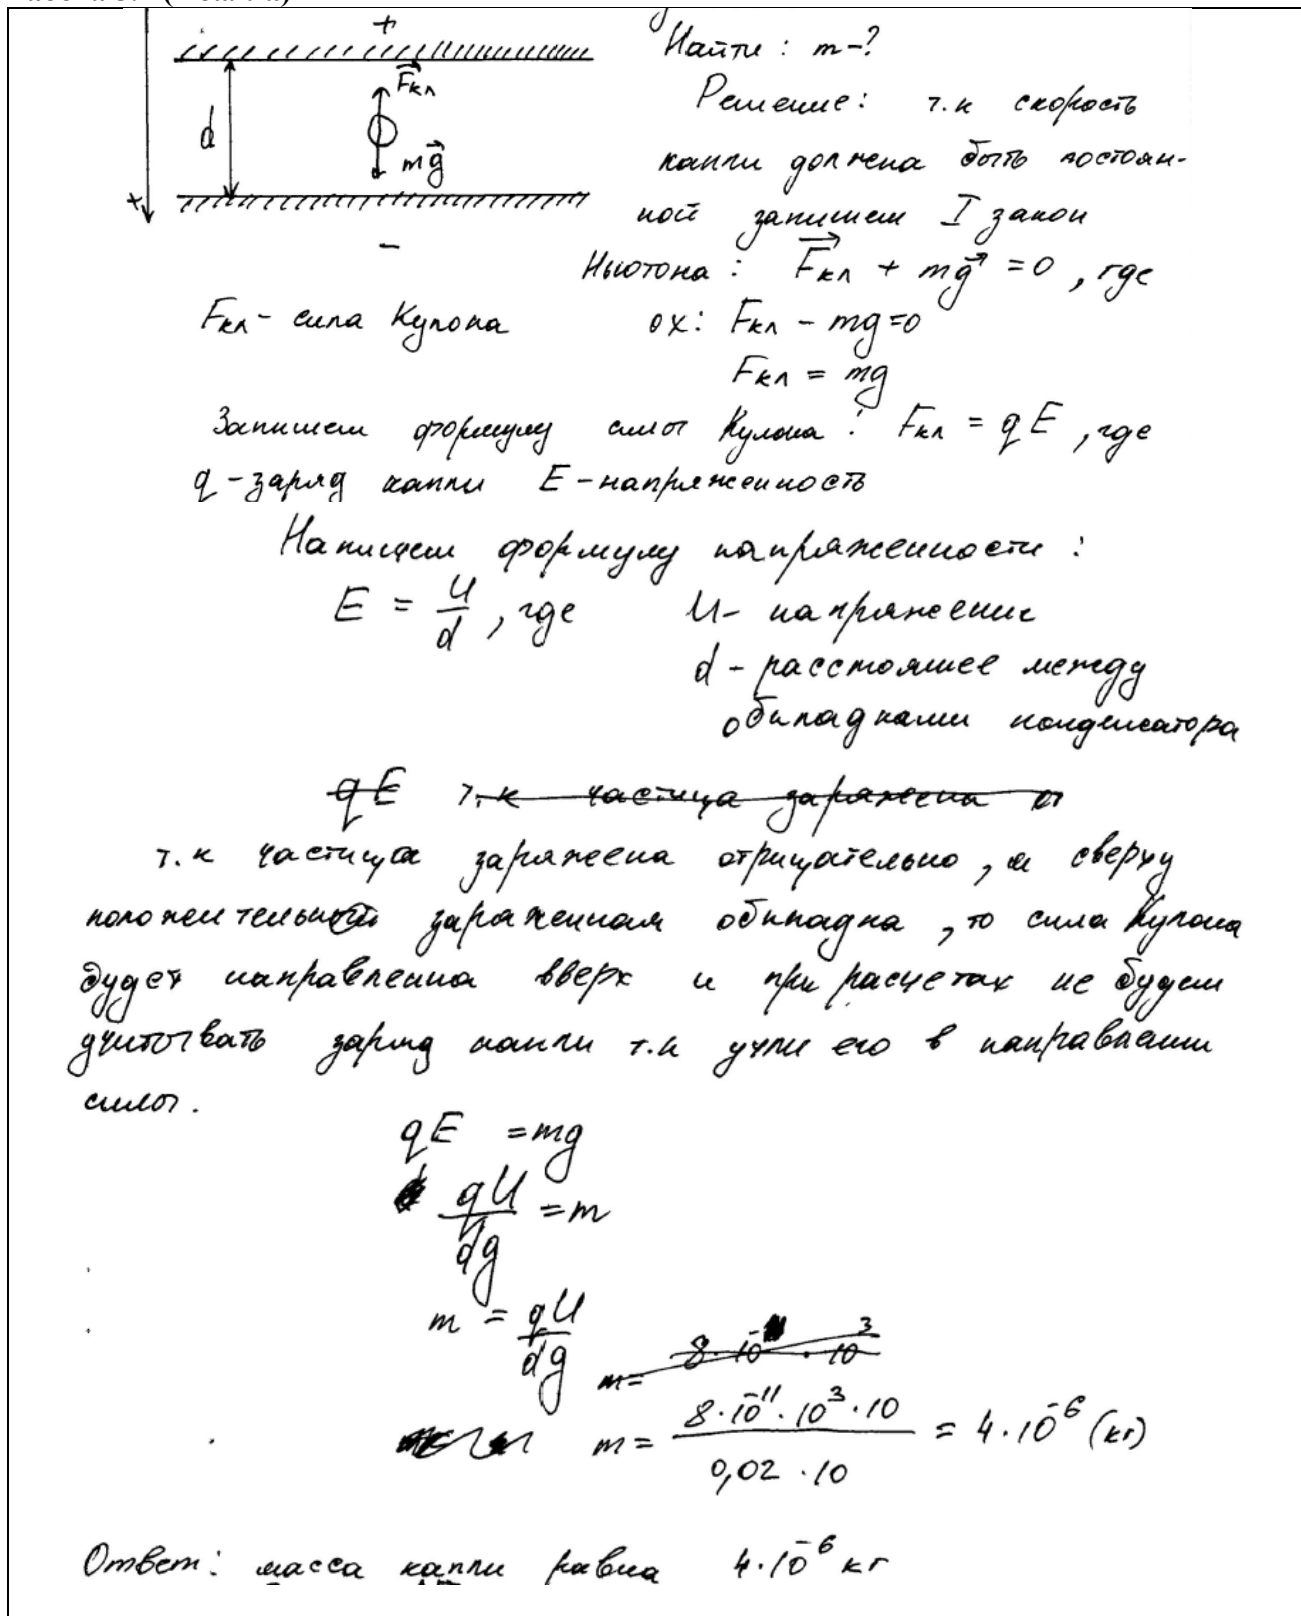 +
Найти: m-?
Fкл
Решение: т.к скорость
d
mg
капли должена быть постоян-
x
ной запишем I закон
-
Ньютона: Fкл + mg = 0, где
Fкл - сила Кулона ox: Fкл - mg=0
Fкл = mg
Запишем формулу силы Кулона: Fкл = qE, где
q - заряд капли E - напряженность
Напишем формулу напряженности:
E = U/d, где U - напряжение
d - расстояние между
обкладками конденсатора
qE т.к частица заряжена о
т.к частица заряжена отрицательно, а сверху
положительной заряженная обкладка, то сила Кулона
будет направленна вверх и при расчетах не будем
учитывать заряд капли т.к учли его в направлении
силы.
qE = mg
qU/dg = m
m = qU/dg
m= 8·10 · 10³
m = 8·10⁻¹¹·10³·10 / 0,02·10 = 4·10⁻⁶ (кг)
Ответ: масса капли равна 4·10⁻⁶ кг